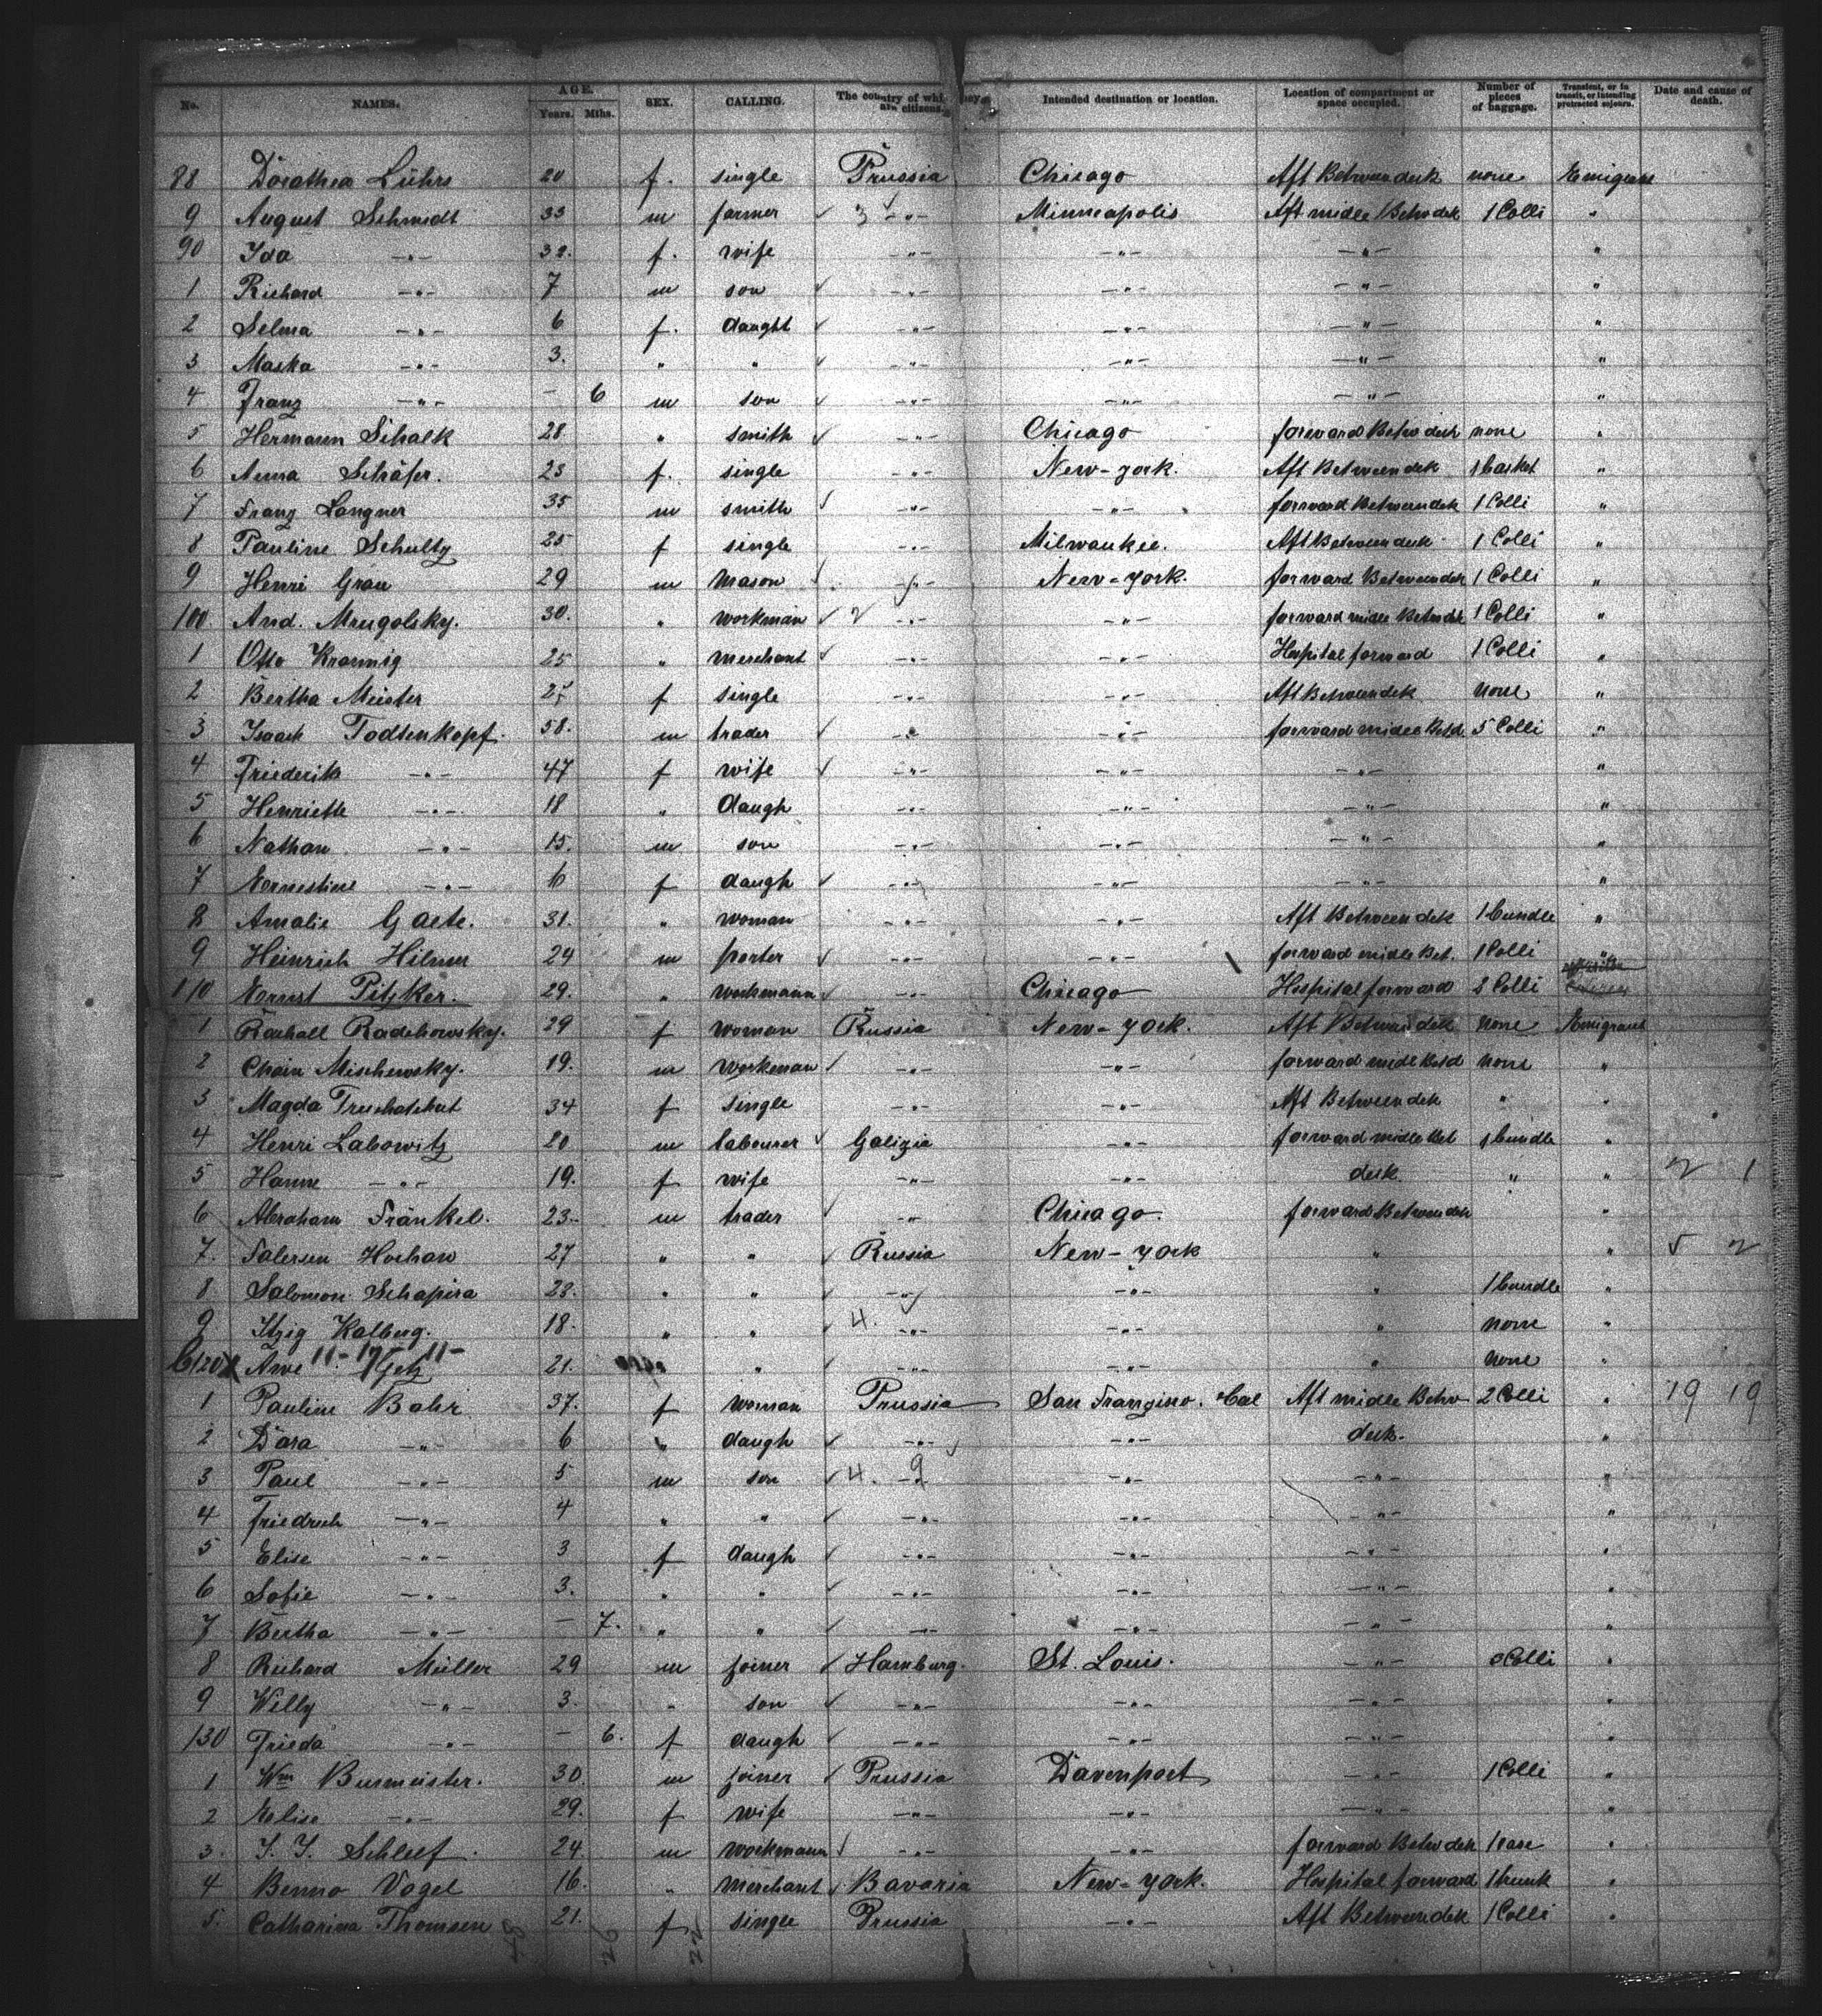 No. NAMES. AGE. Years. Mths. SEX. CALLING. The country of whi are citizens. Intended destination or location. Location of compartment or space occupied. Number of pieces of baggage. Transient, or in transit, or intending protracted sojourn. Date and cause of death.
88 Dorathea Lührs 20 f. single Prussia Chicago Aft Betweendeck none Emigrant
9 August Schmidt 33 m farmer 3 -"- Minneapolis Aft midle Betwdek 1 Colli "
90 Ida -"- 32. f. wife -"- -"- -"- "
1 Richard -"- 7 m son -"- -"- -"- "
2 Selma -"- 6 f. daught -"- -"- -"- "
3 Maska -"- 3. " " -"- -"- -"- "
4 Franz -"- - 6 m son -"- -"- -"- "
5 Hermann Schalk 28 " smith -"- Chicago forward Betwdeck none "
6 Anna Schäfer. 23 f. single -"- New-york. Aft Betweendek 1 basket "
7 Franz Langner 35 m smith -"- -"- forward Betweendek 1 Colli "
8 Pauline Schultz 25 f single -"- Milwaukee. Aft Betweendeck 1 Colli "
9 Henri Grau 29 m mason -"- New-york. forward Betweendek 1 Colli "
100. And. Mrugolsky. 30. " workman 2 -"- -"- forward midle Betwdek 1 Colli "
1 Otto Kraemig 25 " merchant -"- -"- Hospital forward 1 Colli "
2 Bertha Meister f single -"- -"- Aft Betweendek none "
3 Isaack Todtenkopf. 58. m trader -"- -"- forward midle Betd 5 Colli "
4 Friederik -"- 47 f wife -"- -"- -"- "
5 Henriette -"- 18 " daugh -"- -"- -"- "
6 Nathan -"- 15. m son -"- -"- -"- "
7 Ernestine -"- 6 f daugh -"- -"- -"- "
8 Amalie Gaete. 31. " woman -"- -"- Aft Betweendek 1 bundle "
9 Heinrich Hilmer 24 m porter -"- -"- forward midle Bet. 1 Colli "
110 Ernst Pitzker. 29. " workmann -"- Chicago Hospital forward 2 Colli
1 Rachall Radchowsky. 29 f woman Russia New-york. Aft Betweendek none Emigrant
2 Chain Mischewsky. 19. m workman -"- -"- forward midl Betd none "
3 Magda 34 f single -"- -"- Aft Betweendek " "
4 Henri Labowitz 20 m labourer Galizia -"- forward midle Bet 1 bundle "
5 Hanne -"- 19. f wife -"- -"- deck. " " 2 1
6 Abraham Fränkel. 23. m trader -"- Chicago. forward Betweendek "
7. Hochaw 27 " " Russia New-york " " 5 2
8 Salomon Schapira 28. " " -"- -"- " 1 bundle "
9 Itzig Kalberg. 18. " " 4. -"- -"- " none "
120 21. " " -"- -"- " none "
1 Pauline Bahr 37. f woman Prussia San Franzisco. Cal Aft midle Betw 2 Colli " 19 19
2 Dora -"- 6 " daugh -"- -"- deck. "
3 Paul -"- 5 m son 4. 9 -"- -"- -"- "
4 Friedrich -"- 4 " " -"- -"- -"- "
5 Elise -"- 3 f daugh -"- -"- -"- "
6 Sofie -"- 3. " " -"- -"- -"- "
7 Bertha -"- - 7. " " -"- -"- -"- "
8 Richard Müller 29 m joiner Hamburg. St. Louis. -"- Colli "
9 Willy -"- 3. " son -"- -"- -"- "
130 Frieda -"- - 6. f daugh -"- -"- -"- "
1 Wm Burmeister. 30. m joiner Prussia Davenport -"- 1 Colli "
2 Elise -"- 29. f wife -"- -"- -"- "
3. J. J. Schleef. 24 m workmann -"- -"- forward Betwdek 1 case "
4 Benno Vogel 16. " merchant Bavaria New-york. Hospital forward 1 trunk "
5. Catharina Thomsen 21. f single Prussia -"- Aft Betweendek 1 Colli "
26 22